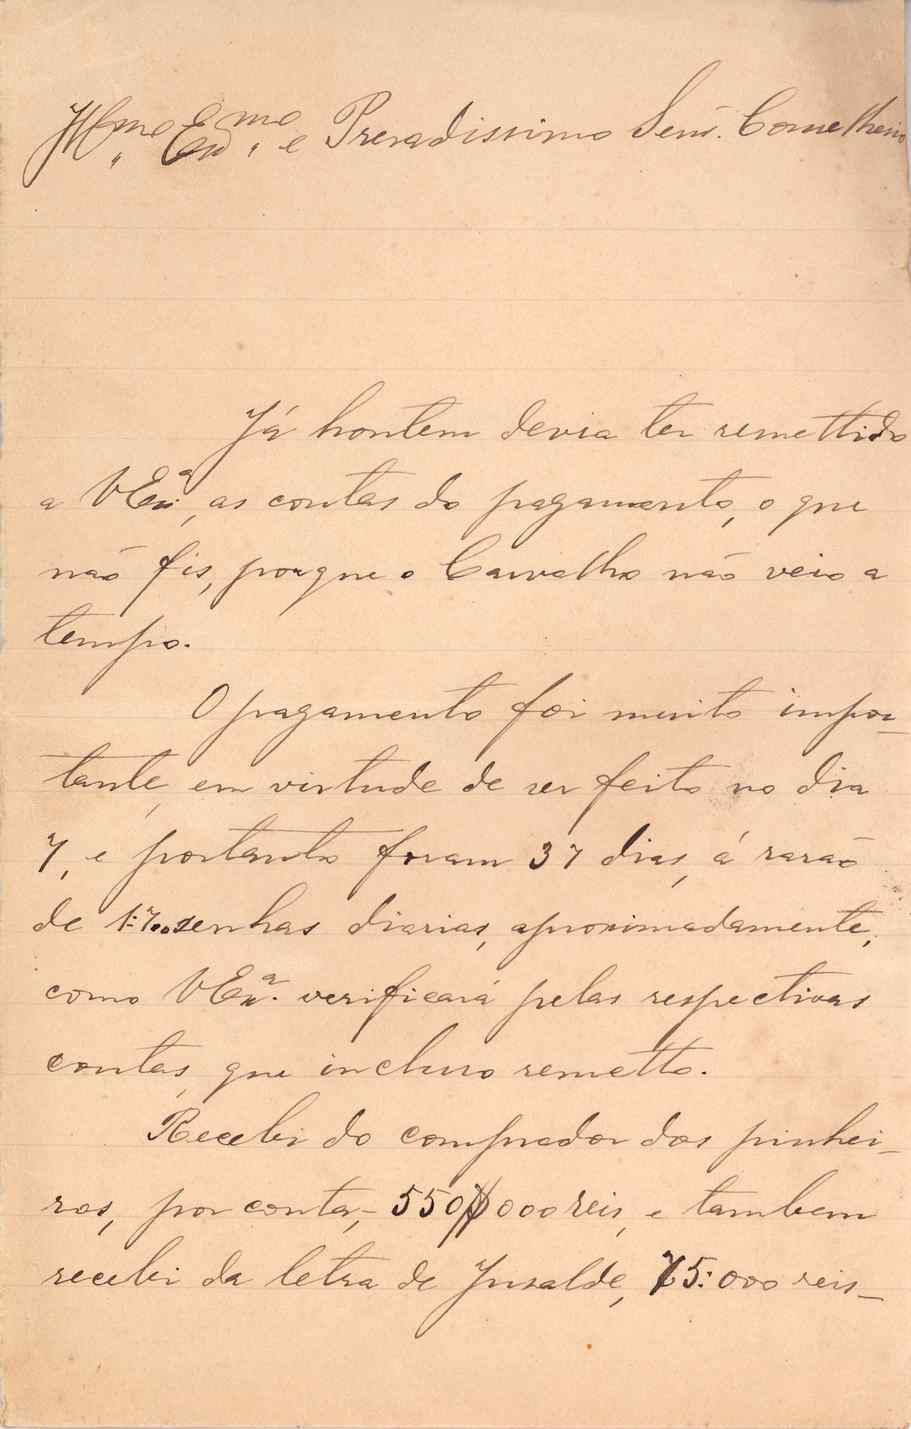 Illmo Exmo e Presadissimo Senr. Conselheiro
Já hontem devia ter remettido
a V Exa, as contas do pagamento, o que
não fis, porque o Carvalho não veio a
tempo.
O pagamento foi muito impor-
tante, em virtude de ser feito no dia
7, e portanto foram 37 dias, á rasão
de 1:700 senhas diarias, aproximadamente,
como V Exa. verificará pelas respectivas
contas, que incluso remetto.
Recebi do comprador dos pinhei-
ros, por conta,- 550$000 reis, e tambem
recebi da letra de Insalde, 75:000 reis-